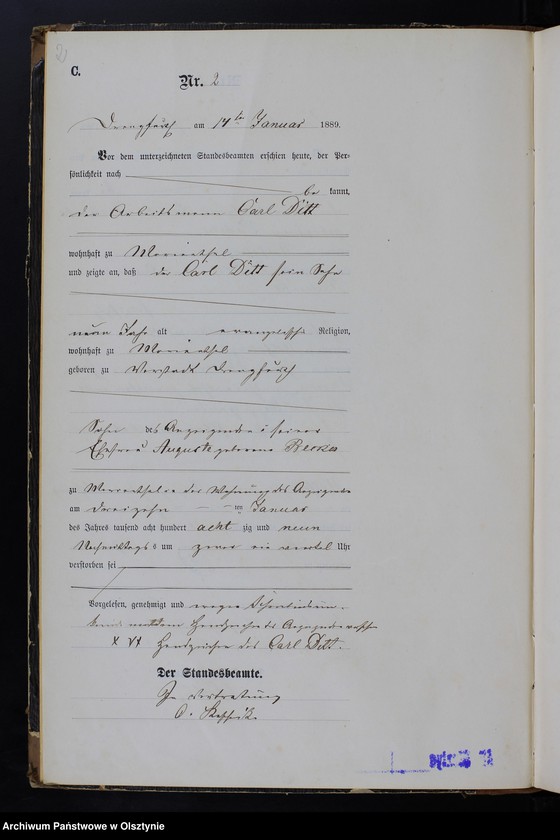 2
C.
Nr. 2
Drengfurth am 14ten Januar 1889.
Vor dem unterzeichneten Standesbeamten erschien heute, der Per-
sönlichkeit nach
be kannt,
der Arbeitsmann Carl Ditt
wohnhaft zu Marienthal
und zeigte an, daß der Carl Ditt sein Sohn
neun Jahr alt evangelischer Religion,
wohnhaft zu Marienthal
geboren zu Vorstadt Drengfurth
Sohn des Anzeigenden u seiner
Ehefrau Auguste geborene
zu Marienthal in der Wohnung des Anzeigenden
am dreizehn ten Januar
des Jahres tausend acht hundert acht zig und neun
Nachmittags um zwei ein viertel Uhr
verstorben sei
Vorgelesen, genehmigt und wegen Schreibensun-
kunde mit dem Handzeichen des Anzeigenden versehen
Handzeichen des Carl Ditt.
Der Standesbeamte.
In Vertretung
Archiwum Państwowe w Olsztynie